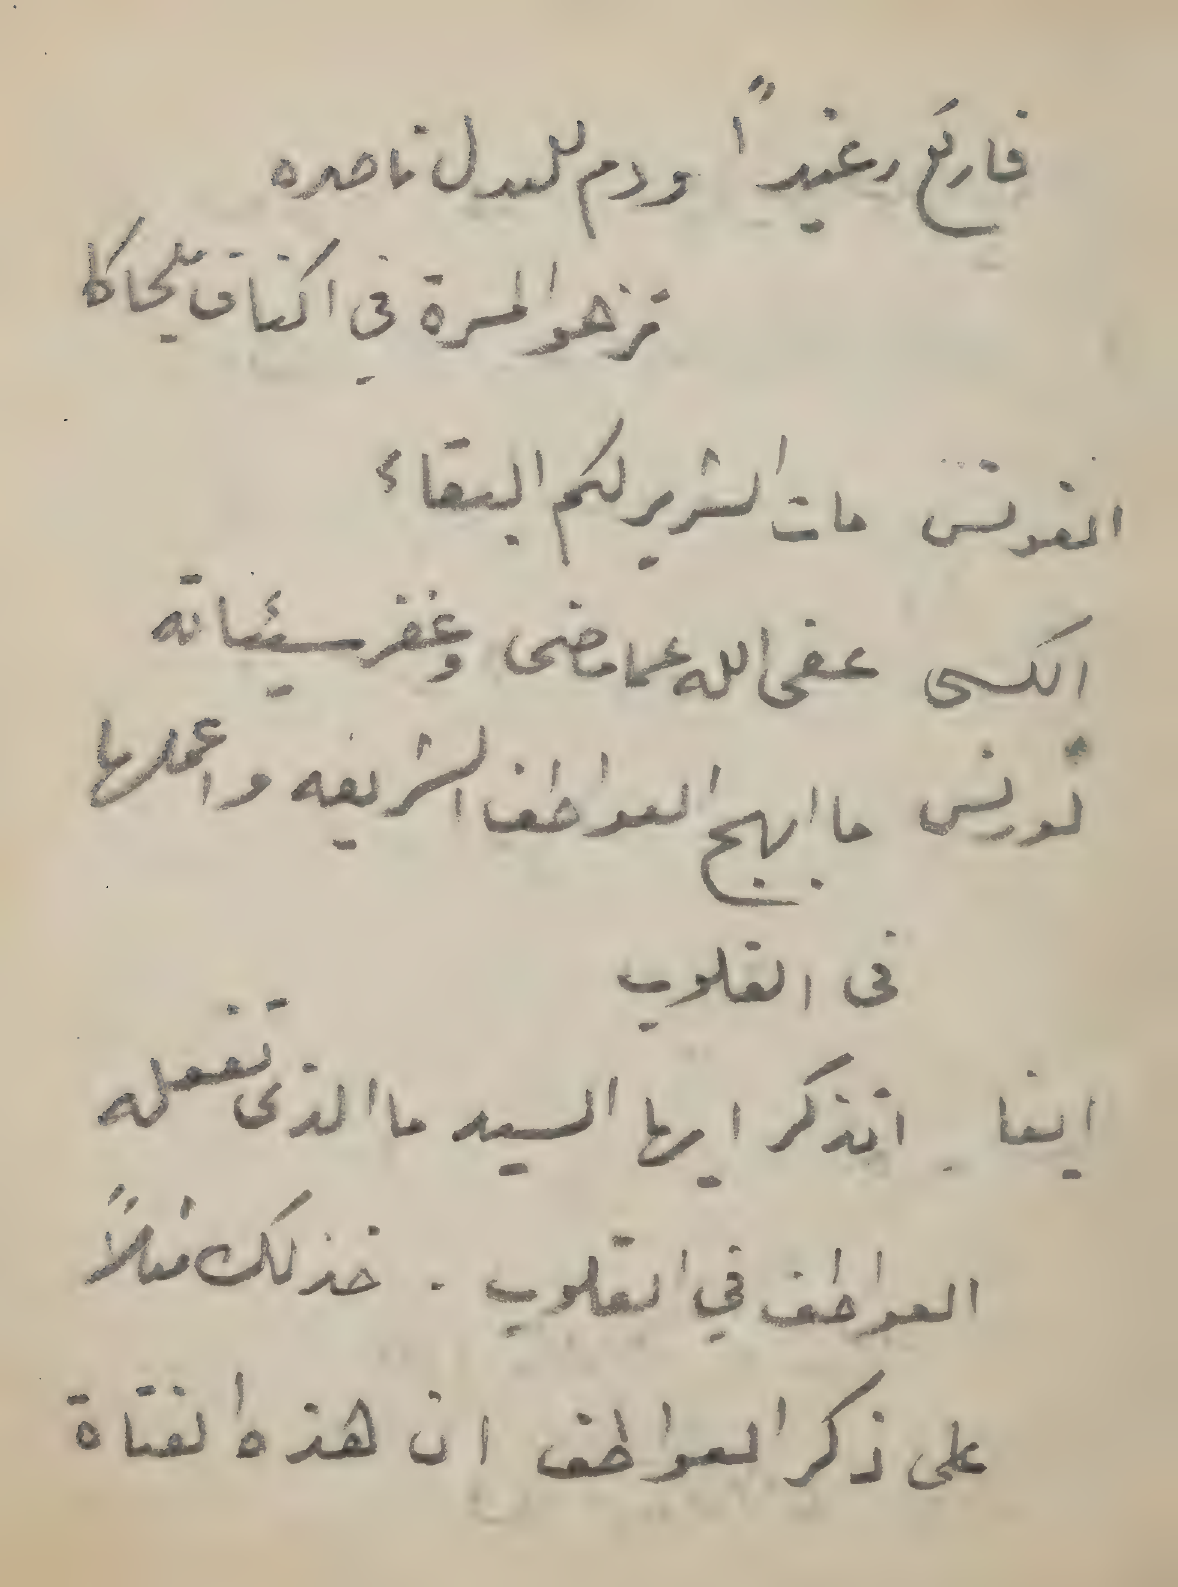 فارتع رغيداً ودم للعدل ناصره
تزهو المسرة في اكناف
الفونس مات الشرير لكم البقاء
الكسى عفى الله عما مضى وغفر سيئاته
لورنس ما ابهج العواطف الشريفه واعملها
فى القلوب
ايفا اتذكر ايها السيد ما الذى تفعله
العواطف في القلوب . خذ لك مثلاً
على ذكر العواطف ان هذه الفتاة